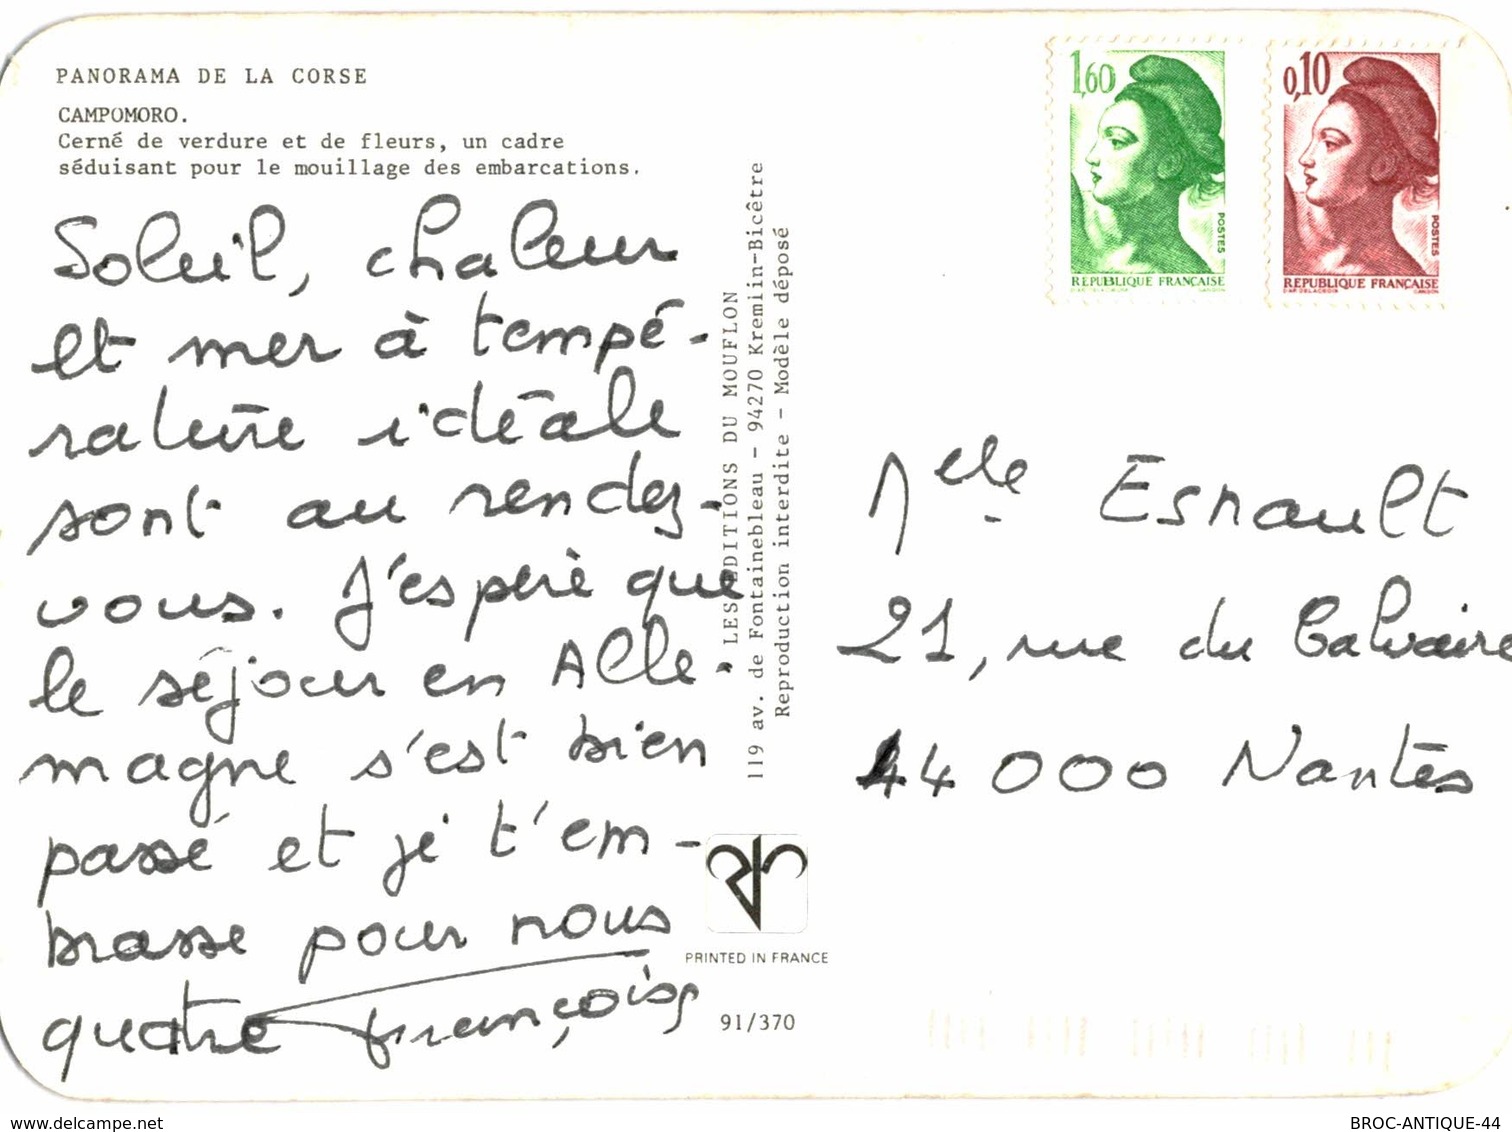 PANORAMA DE LA CORSE
CAMPOMORO.
Cerné de verdure et de fleurs, un cadre
séduisant pour le mouillage des embarcations.
Soleil, chaleur
et mer à tempé-
rature idéale
sont au rendez-
vous. J'espère que
le séjour en Alle-
magne s'est bien
passé et je t'em-
brasse pour nous
quatre françoise
LES EDITIONS DU MOUFLON
119 av. de Fontainebleau - 94270 Kremlin-Bicêtre
Reproduction interdite - Modèle déposé
PRINTED IN FRANCE
91/370
1,60
POSTES
REPUBLIQUE FRANÇAISE
D'AP. DELACROIX
GANDON
0,10
POSTES
REPUBLIQUE FRANÇAISE
D'AP. DELACROIX
GANDON
Melle Esnault
21, rue du Calvaire
44000 Nantes
delcampe.net
BROC-ANTIQUE-44